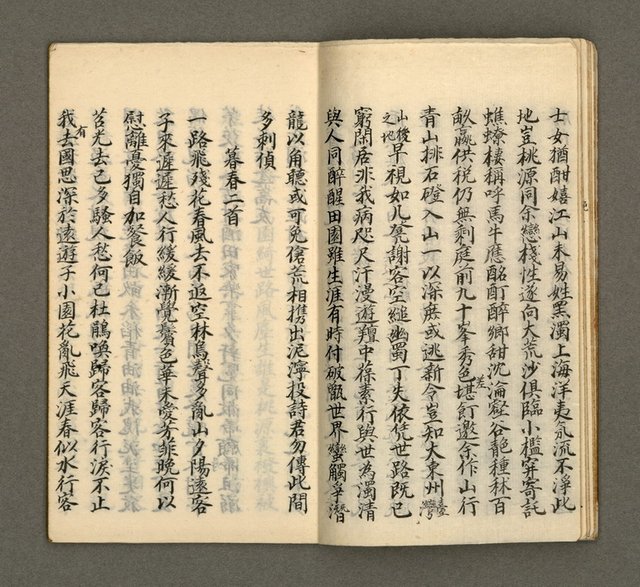 士女猶酣嬉江山未易姓黑濁上海洋夷氛流不淨此
地豈桃源同余戀棧性遂向大荒沙俱臨小檻穽寄託
蟭蟟棲稱呼馬牛應酩酊醉鄉甜沉淪壑谷靘種秫百
畝贏供稅仍無剩庭前九十峯秀色堪飣邀余作山行
青山排石磴入山一以深庶或逃新令豈知大東州臺灣
山後之地早視如几凳謝客空縋幽蜀丁失依凭世路既已
窮閑居非我病咫尺汗漫遊羶中葆素行與世為濁清
與人同醉醒田園雖生涯有時付破甑世界蠻觸爭潛
龍以角聽或可免傖荒相携出泥濘投詩君勿傳此間
多刺偵
暮春二首
一路飛殘花春風去不返空林鳥聲多亂山夕陽遠客
子來遲遲愁人行緩緩漸覺鬢色華未愛芳菲晚何以
慰離憂獨自加餐飯
苕光去已多騷人愁何已杜鵑喚歸客歸客行淚不止
我去國思深於遠遊子小園花亂飛天涯春似水行客
有